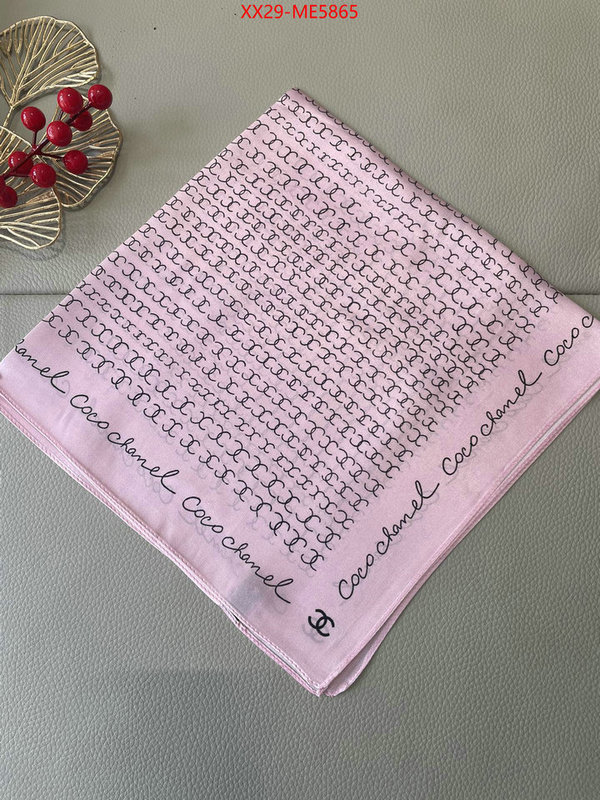 XX29-ME5865
chanel Coco chanel Coco chanel
Coco chanel Coco chanel Coco